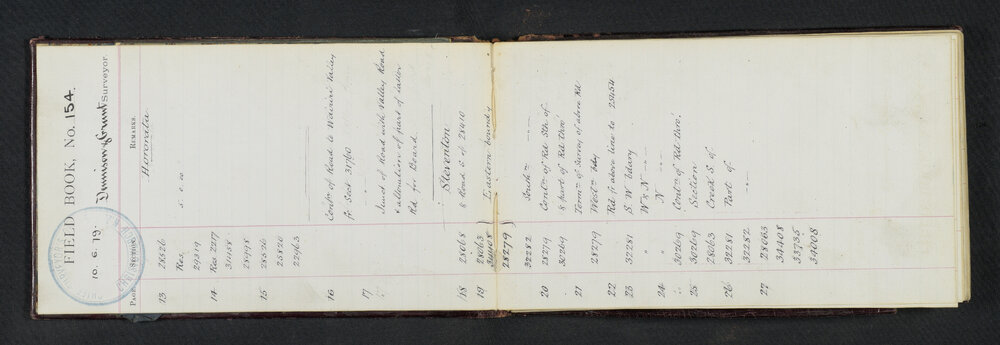 FIELD BOOK, No. 154.
10. 6. 79. Dennison & Grant Surveyor
PAGE. SECTION. REMARKS.
Hororata
13 28526
Res. S. C. 10.
29319
14 Res 2217
31458
28498
15 28526
25820
22963
16 Contn of Road to Waireri Valley
fr Sect 31760
17 Junct of Road with Valley Road
& alteration of part of latter
Rd. for Board
Steventon
18 28068 & Road S of 28410
19 28063
34408 } Eastern boundy
28279
32282 South "
20 28279 Contn of Rd. Sth. of
30269 & part of Rd. thro'
21 Termn of Survey of above Rd
28279 Westn bdy
22 Rd fr above line to 25454
23 32281 S. W bdary
" W & N "
24 " N "
30269 Contn of Rd. thro'.
25 30269 Section
28063 Creek S. of
26 32281 Part of
32282 "
27 28063
34408
33735
34008